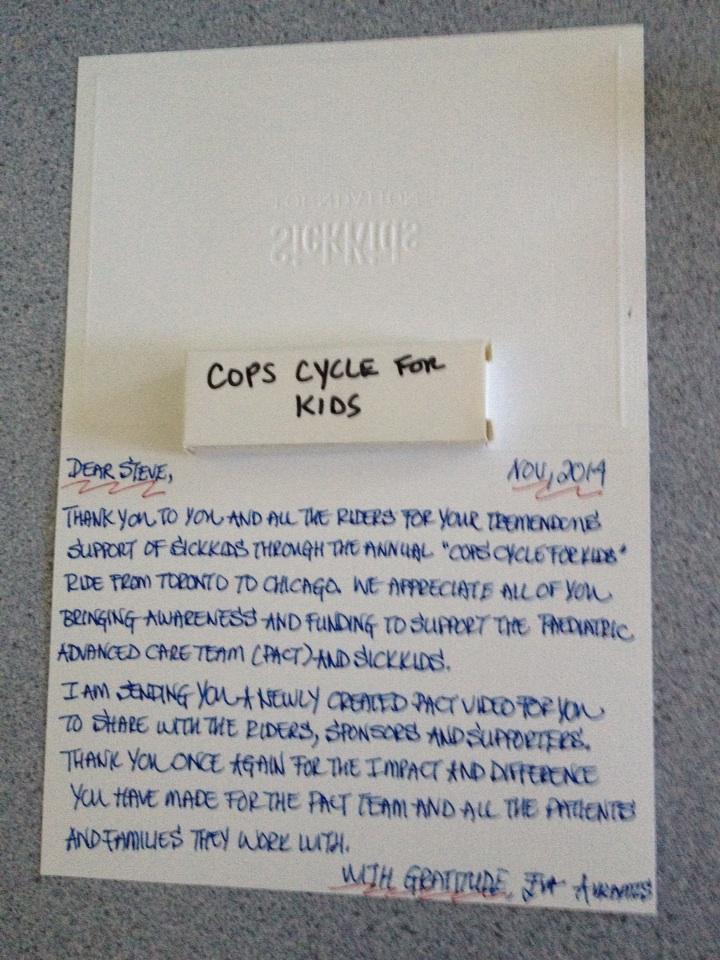 SickKids
FOUNDATION
COPS CYCLE FOR
KIDS
DEAR STEVE,
NOV, 2014
THANK YOU TO YOU AND ALL THE RIDERS FOR YOUR TREMENDOUS
SUPPORT OF SICKKIDS THROUGH THE ANNUAL "COPS CYCLE FOR KIDS"
RIDE FROM TORONTO TO CHICAGO. WE APPRECIATE ALL OF YOU
BRINGING AWARENESS AND FUNDING TO SUPPORT THE PAEDIATRIC
ADVANCED CARE TEAM (PACT) AND SICKKIDS.
I AM SENDING YOU A NEWLY CREATED PACT VIDEO FOR YOU
TO SHARE WITH THE RIDERS, SPONSORS AND SUPPORTERS.
THANK YOU ONCE AGAIN FOR THE IMPACT AND DIFFERENCE
YOU HAVE MADE FOR THE PACT TEAM AND ALL THE PATIENTS
AND FAMILIES THEY WORK WITH.
WITH GRATITUDE,